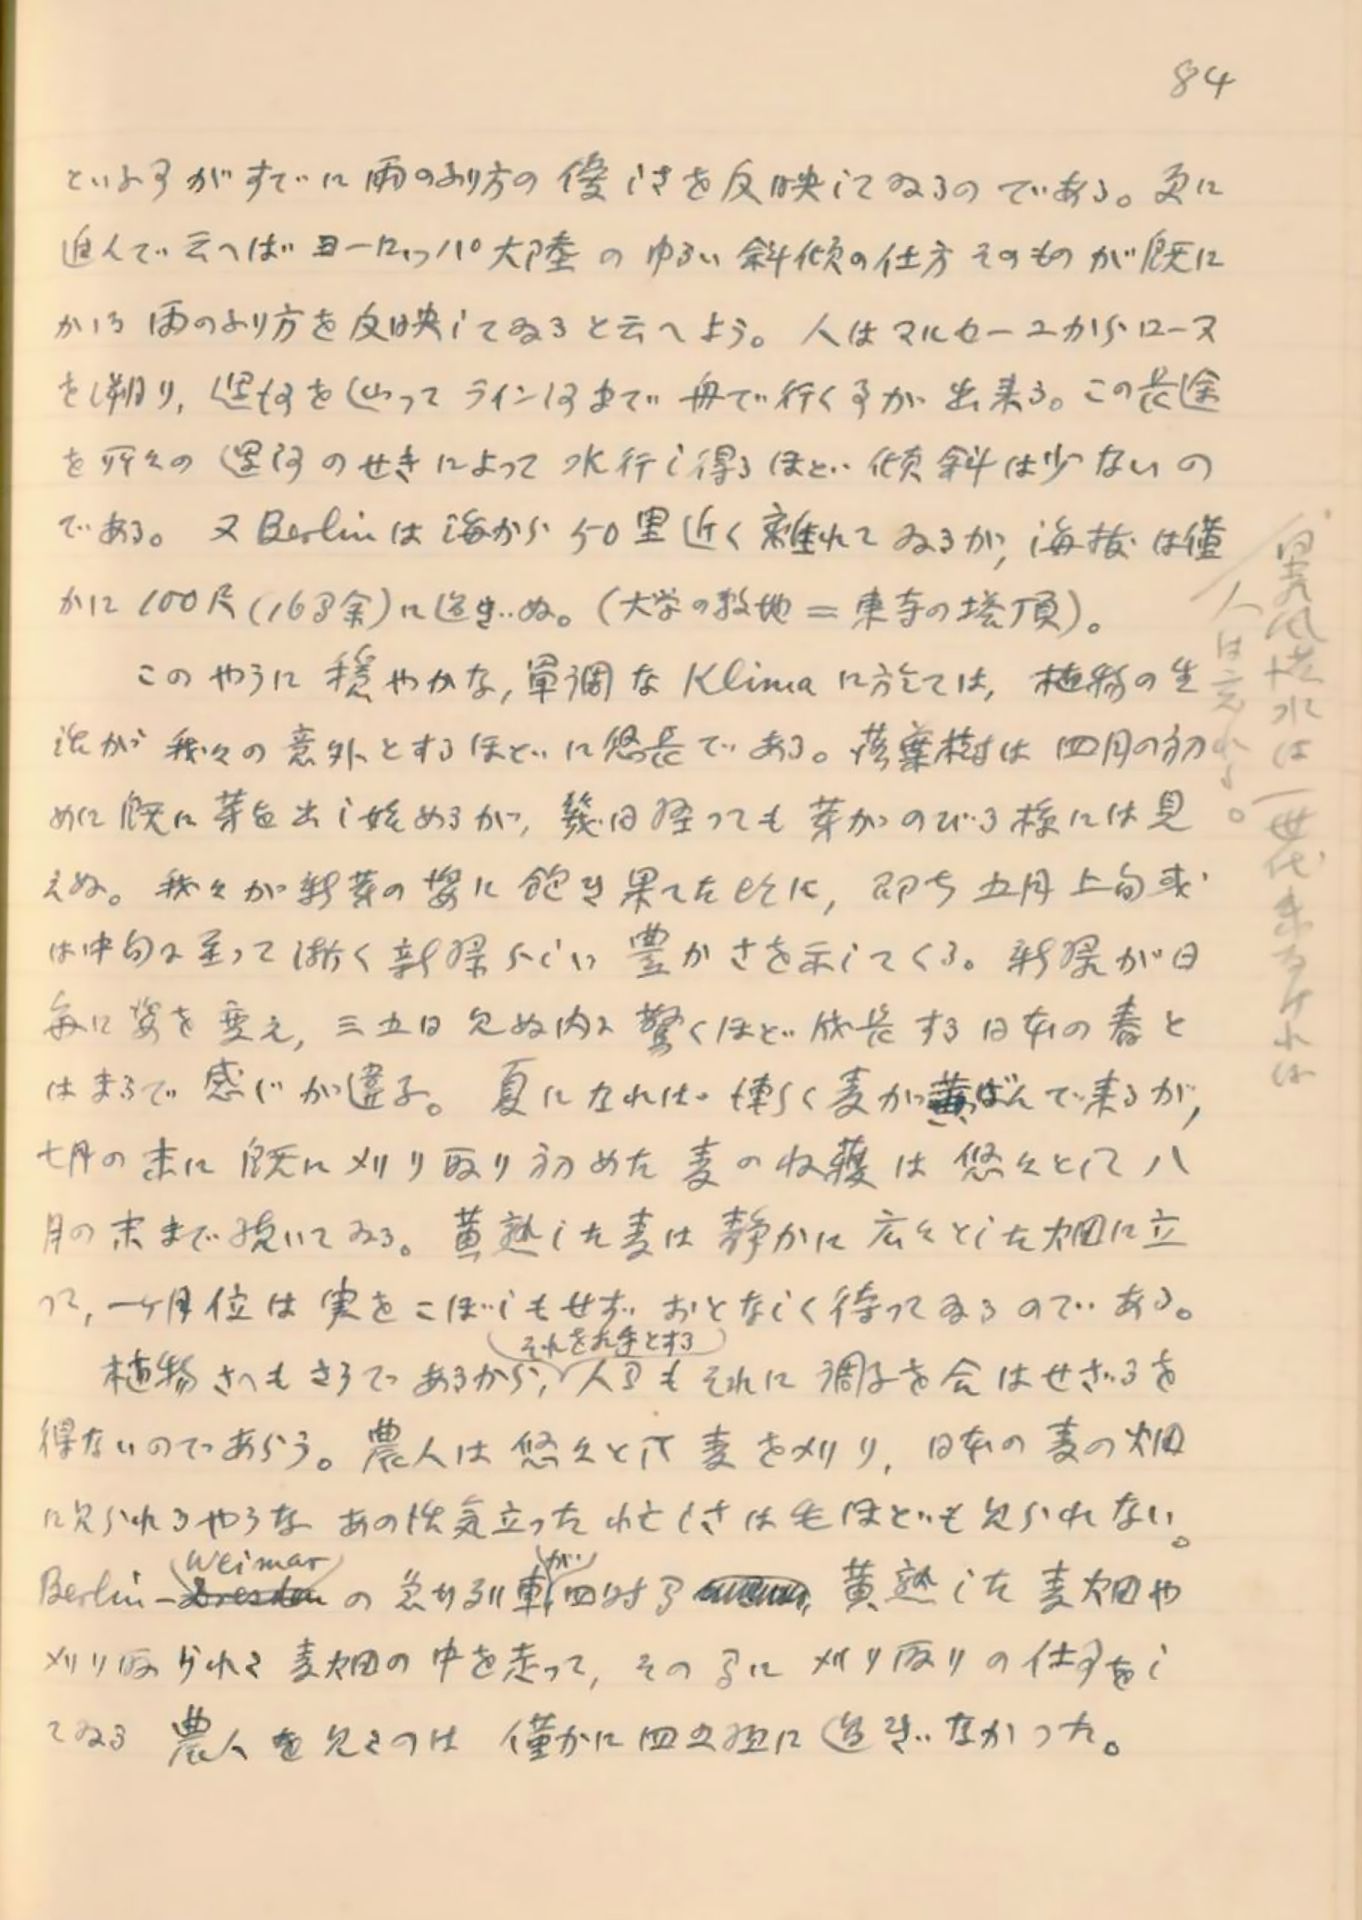 84
といふ事がすでに雨のふり方の優しさを反映してゐるのである。更に
進んで云へばヨーロッパ大陸のゆるい斜傾の仕方そのものが既に
かゝる雨のふり方を反映してゐると云へよう。人はマルセーユからローヌ
を溯り,運河を辿ってライン河まで舟で行く事が出来る。この長途
を所々の運河のせきによって水行し得るほど傾斜は少ないの
である。又Berlinは海から50里近く離れてゐるが,海抜は僅
かに100尺(16間余)に過ぎぬ。(大学の敷地=東寺の塔頂)。
このやうに穏やかな,単調なKlimaに於ては,植物の生
活が我々の意外とするほどに悠長である。落葉樹は四月の初
めに既に芽を出し始めるが,幾日経っても芽がのびる様には見
えぬ。我々が新芽の姿に飽き果てた時に,即ち五月上旬或
は中旬に至って漸く新緑らしい豊かさを示してくる。新緑が日
毎に姿を変え,三五日見ぬ内に驚くほど成長する日本の春と
はまるで感じが違ふ。夏になれば漸く麦が黄ばんで来るが,
七月の末に既に刈り取り初めた麦の収穫は悠々として八
月の末まで続いてゐる。黄熟した麦は静かに広々とした畑に立
って,一ヶ月位は実をこぼしもせずおとなしく待ってゐるのである。
それを相手とする
植物さへもさうであるから,人間もそれに調子を合はせざるを
得ないのであらう。農人は悠々として麦を刈り,日本の麦の畑
に見られるやうなあの殺気立った忙しさは毛ほども見られない。
Weimar が
Berlin-Dresdenの急行列車四時間 黄熟した麦畑や
刈り取られた麦畑の中を走って,その間に刈り取りの仕事をし
てゐる農人を見たのは僅かに四五組に過ぎなかった。
暴風洪水は一世代来なければ
人は忘れる。